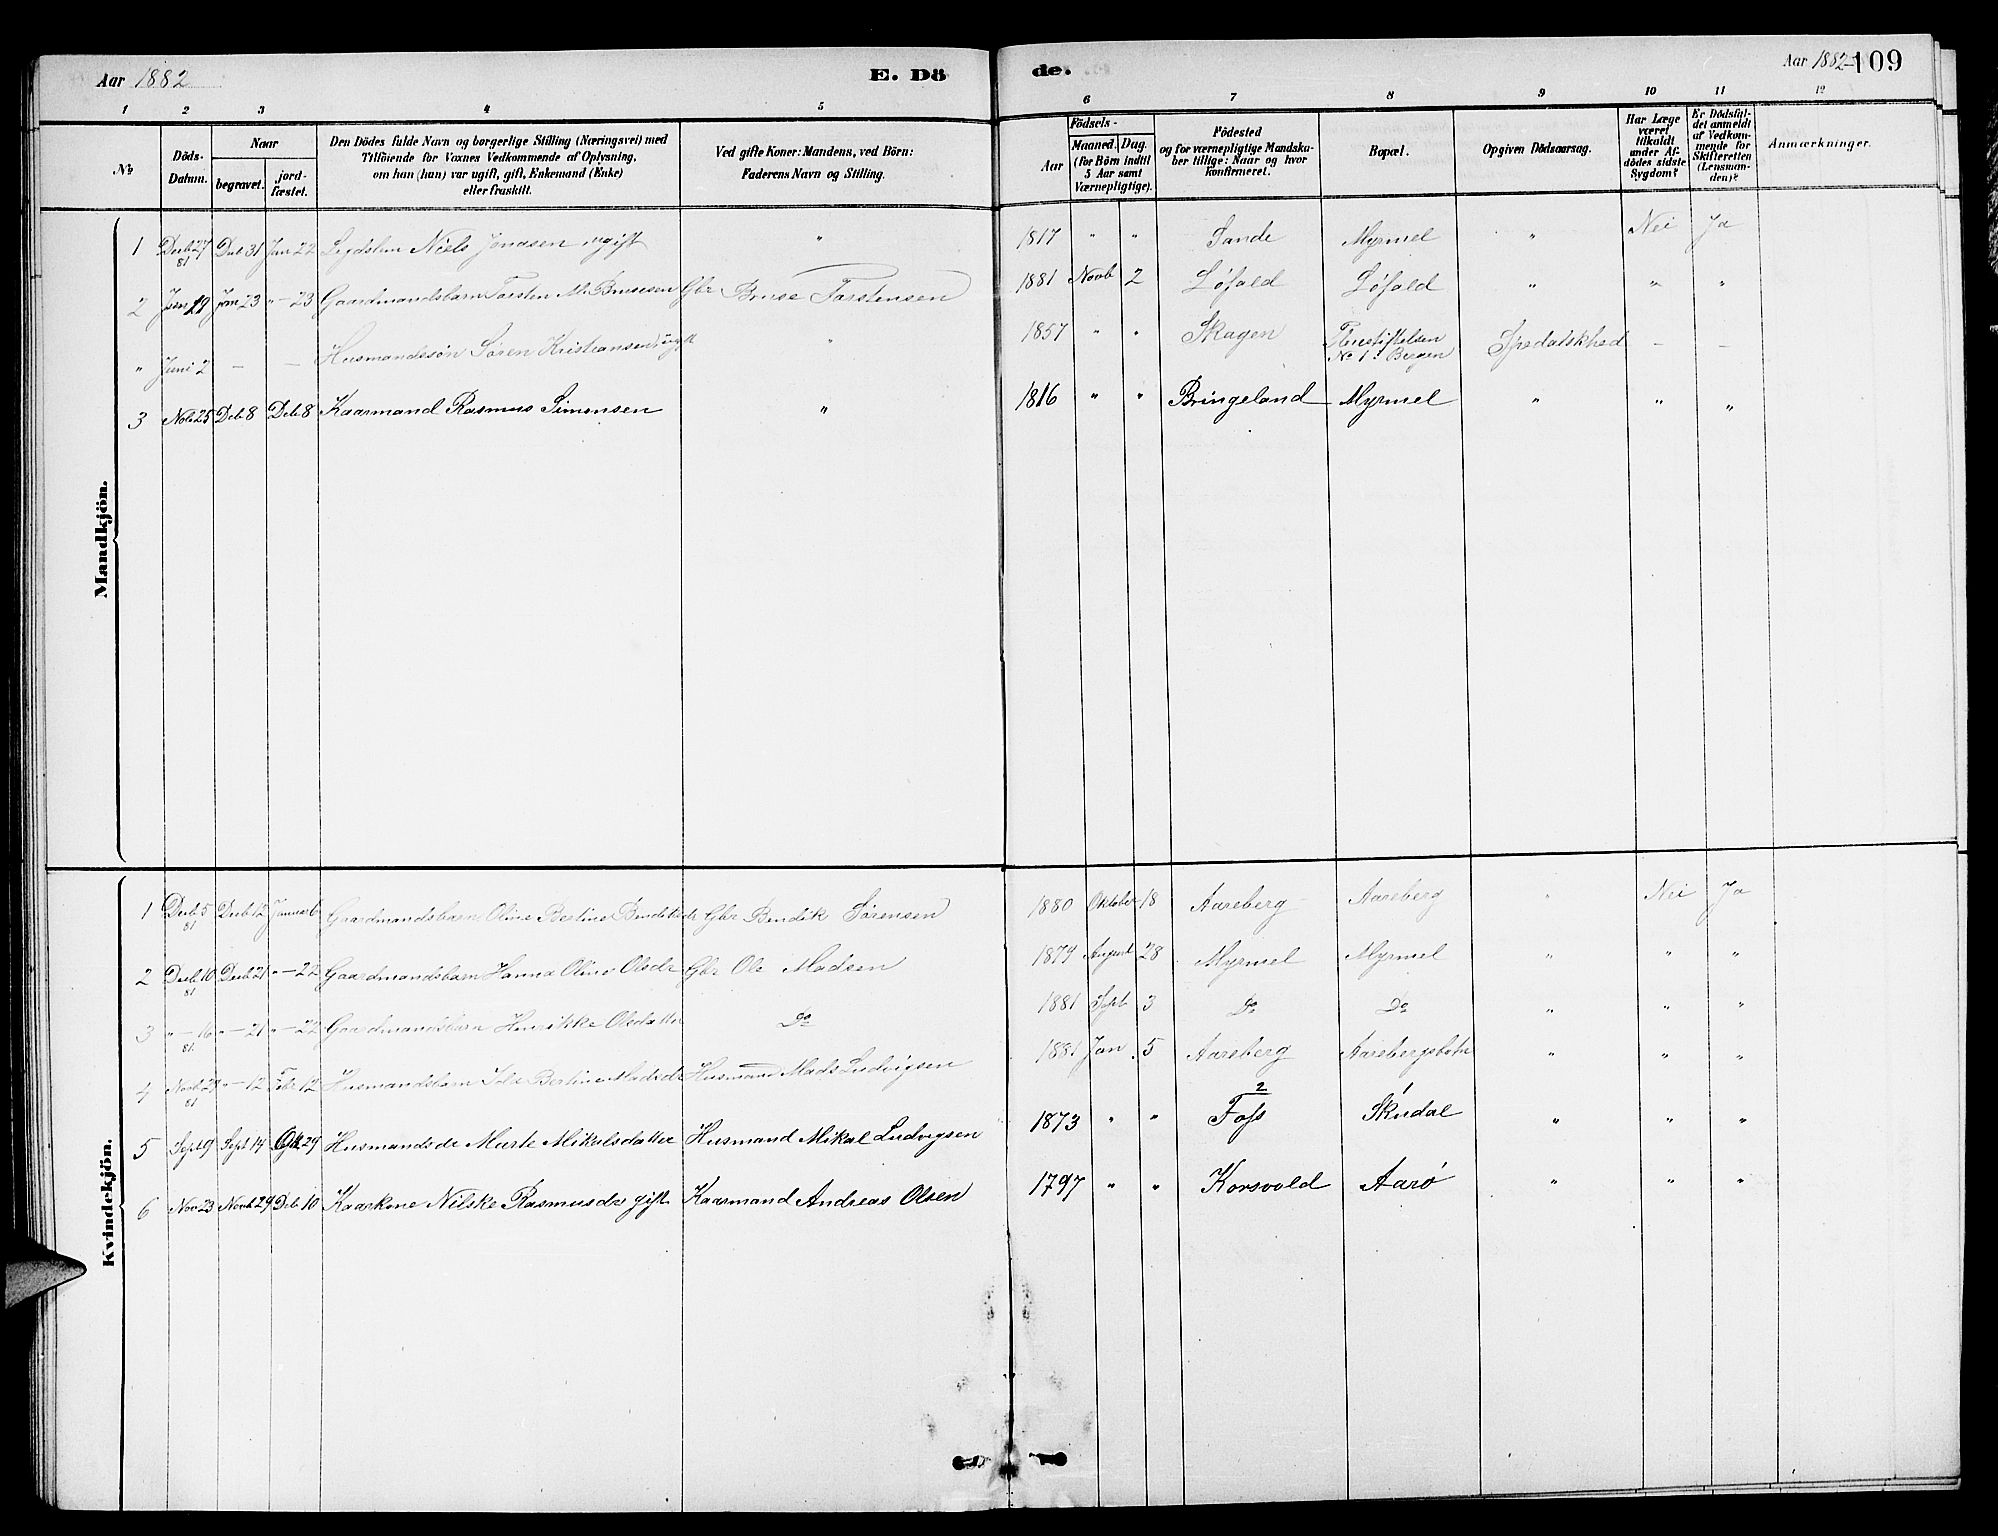 Aar 1882
E. Dö
de.
Aar 1882
109
1 2 3 4 5 6 7 8 9 10 11 12
No
Döds-Datum.
Naar
begravet.
jord-fæstet.
Den Dödes fulde Navn og borgerlige Stilling (Næringsvei) med
Tilföiende for Voxnes Vedkommende af Oplysning,
om han (hun) var ugift, gift, Enkemand (Enke)
eller fraskilt.
Ved gifte Koner: Mandens, ved Börn:
Faderens Navn og Stilling.
Födsels-
Aar
Maaned. Dag.
(for Börn indtil
5 Aar samt
Værnepligtige).
Födested
og for værnepligtige Mandska-
ber tillige: Naar og hvor
konfirmeret.
Bopæl.
Opgiven Dödsaarsag.
Har Læge
været
tilkaldt
under Af-
dödes sidste
Sygdom?
Er Dödsfal-
det anmeldt
af Vedkom-
mende for
Skifteretten
(Lensman-
den)?
Anmærkninger.
Mandkjön.
1 Decb 27 81 Deb 31 Jan 22 Legdslem Niels Jonasen ugift " 1817 " " Sande Myrmel " Nei Ja
2 Jan 19 Jan 23 " - 23 Gaardmandsbarn Torsten M. Brusesen Gbr Bruse Torstensen 1881 Novb 2 Løfald Løfald " " "
" Juni 2 - - Husmandssön Søren Kristiansen ugift " 1857 " " Skagen Pleiestiftelsen No 1. Bergen Spedalskhed - -
3 Nob 25 Deb 8 Deb 8 Kaarmand Rasmus Simonsen " 1816 " " Bringeland Myrmel " " "
Kvindekjön.
1 Decb 5 81 Decb 12 Januar 6 Gaardmandsbarn Oline Bertine Bendiksdr Gbr Bendik Sørensen 1880 Oktober 18 Aareberg Aareberg " Nei Ja
2 Decb 10 81 Decb 21 " - 22 Gaardmandsbarn Hanna Oline Olsdr Gbr Ole Madsen 1879 August 28 Myrmel Myrmel " " "
3 " - 16 81 " - 21 " - 22 Gaardmandsbarn Henrikke Olsdatter Do 1881 Sept 3 Do Do " " "
4 Novb 27 81 " - 12 Febr 12 Husmandsbarn Bertine Madsdr Husmand Mads Ludvigsen 1881 Jan 5 Aareberg Aarebergsbotn " " "
5 Sept 9 Sept 14 Okt 29 Husmandsdr Marte Mikelsdatter Husmand Mikal Ludvigsen 1873 " " Foss 2 Skudal " " "
6 Nov 23 Novb 29 Deb 10 Kaarkone Nilske Rasmusdr gift Kaarmand Andreas Olsen 1797 " " Korsvold Aarø " " "